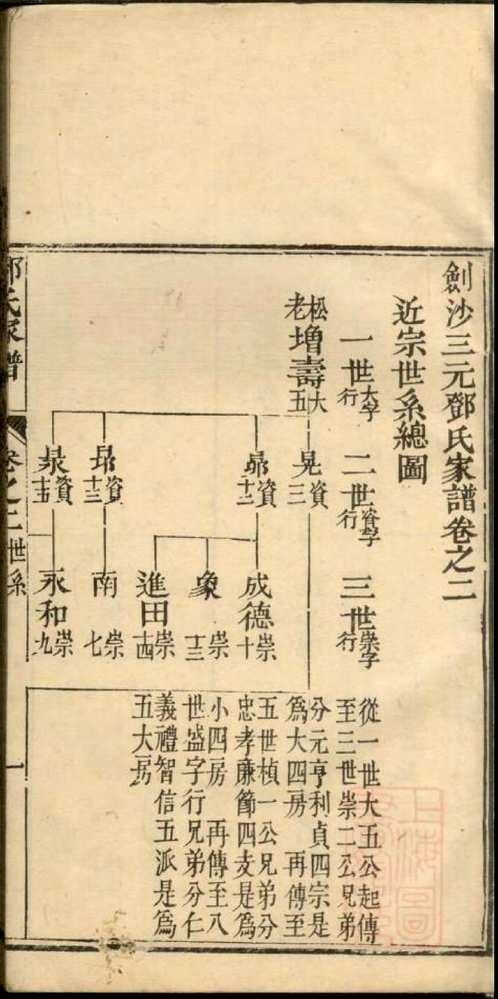 劍沙三元鄧氏家譜卷之二
近宗世系總圖
一世大字行
二世資字行
三世崇字行
松老增壽大五
晃資三
資十二
成德崇十
象崇十三
進田崇十四
資十三
南崇七
資十五
永和崇九
從一世大五公起傳
至三世崇二公兄弟
分元亨利貞四宗是
為大四房 再傳至
五世楨一公兄弟分
忠孝廉節四支是為
小四房 再傳至八
世盛字行兄弟分仁
義禮智信五派是為
五大房
鄧氏家譜
卷之二世系
一